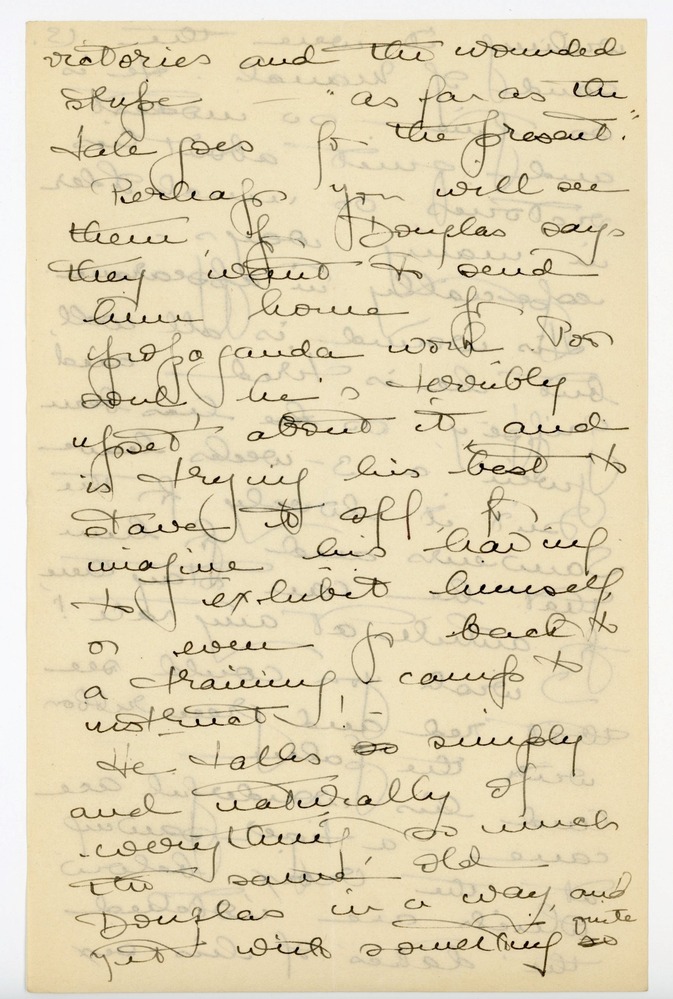 victories and the wounded
stripe — "as far as the
tale goes for the present."
Perhaps you will see
them if Douglas says
they want to send
him home for
propaganda work. Poor
soul, he's terribly
upset about it and
is trying his best to
stave it off for
imagine his having
to exhibit himself,
or even go back to
a training-camp to
instruct!-
He talks so simply
and naturally of
everything so much
the same old
Douglas in a way, and
yet with something quite so